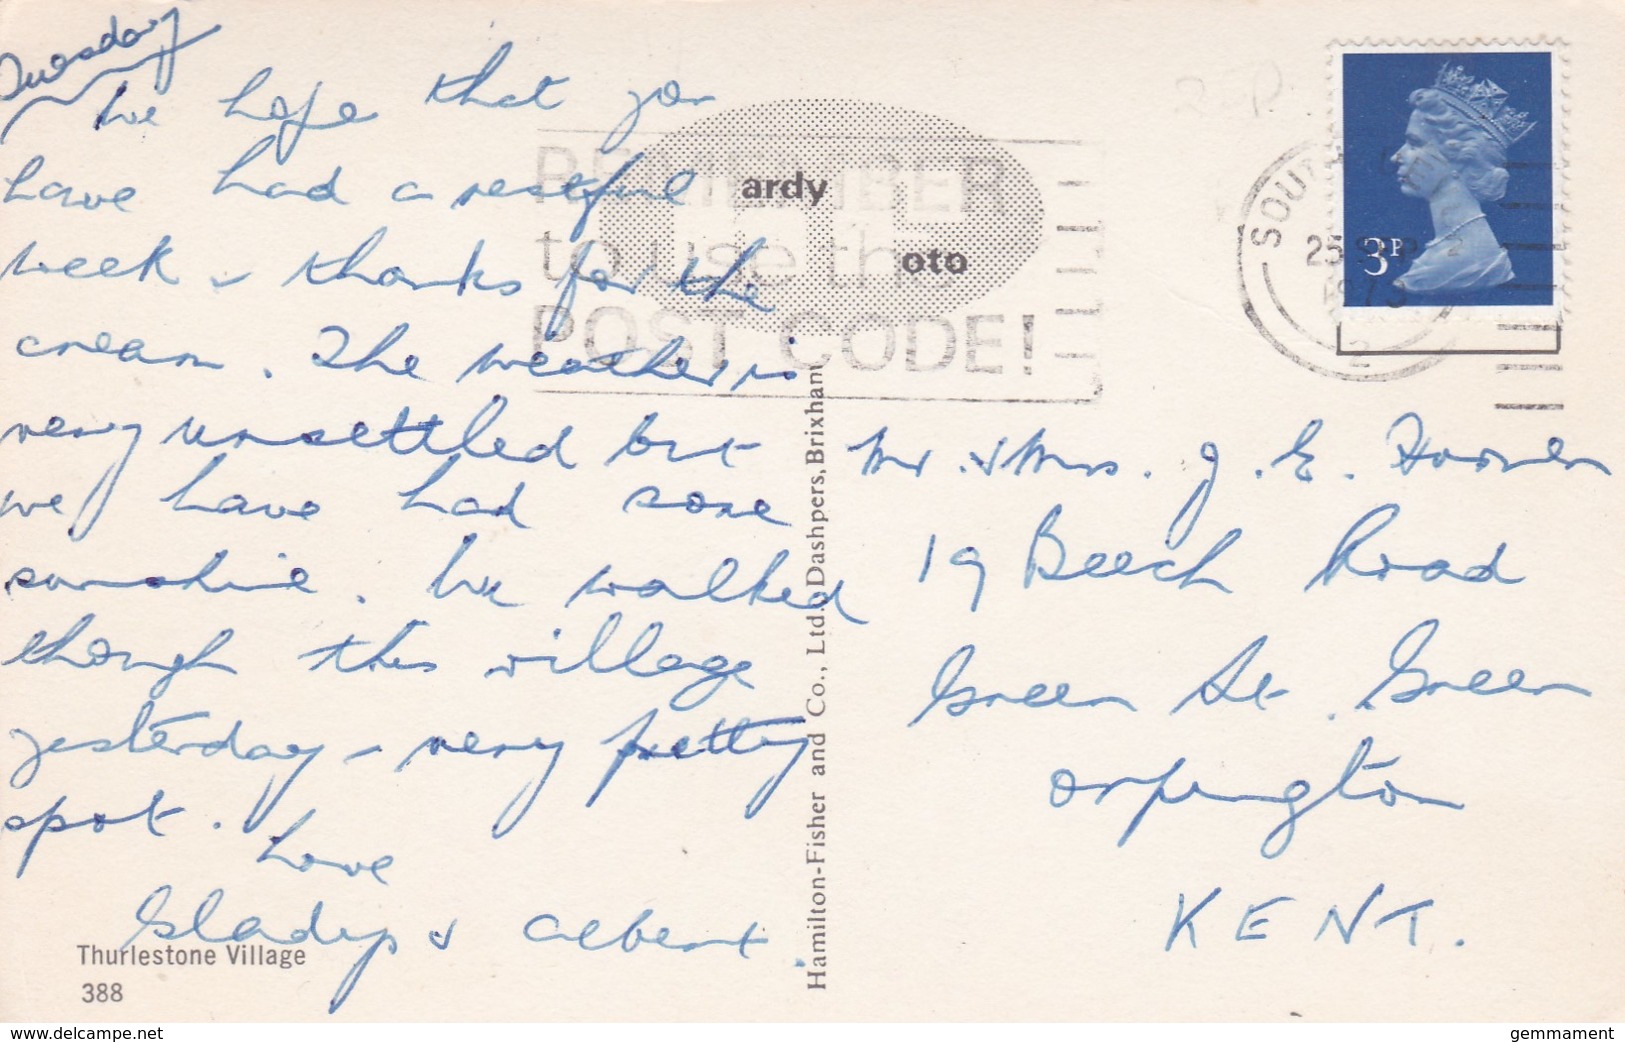 Tuesday
We hope that you
have had a restful
week & thanks for the
cream. The weather is
very unsettled but
we have had some
sunshine. We walked
though this village
yesterday – very pretty
spot.
Love
Gladys & Albert.
Thurlestone Village
388
Hamilton-Fisher and Co., Ltd. Dashpers, Brixham
ardy
oto
REMEMBER
to use the
POST CODE!
SOUTH DEVON
25 SEP
1973
2
3P
2 P.
Mr. & Mrs. J. E.
19 Beech Road
Green St. Green
Orpington
KENT.
www.delcampe.net
gemmament